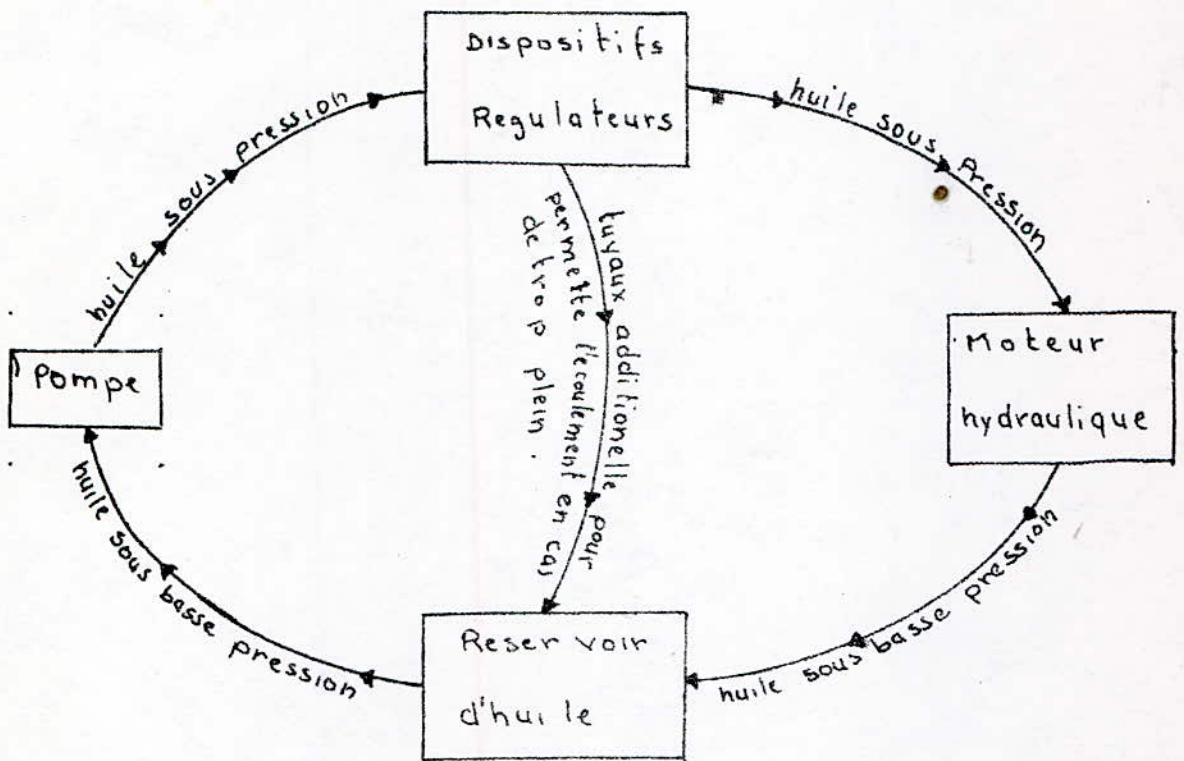 Dispositifs
Regulateurs
huile sous pression
huile sous Pression
Pompe
Moteur
hydraulique
tuyaux additionelle pour
permette l'ecoulement en cas
de trop plein.
huile sous basse pression
huile sous basse pression
Reser voir
d'huile